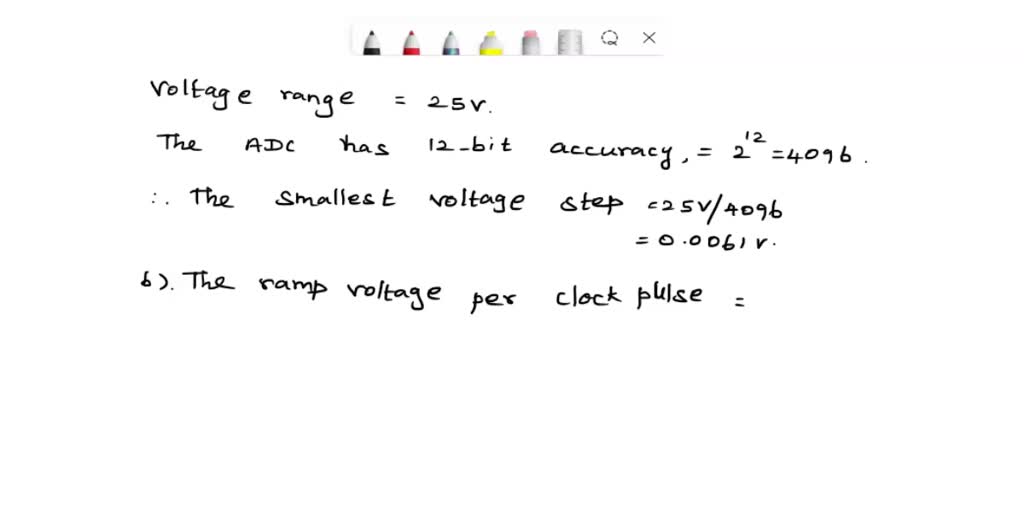 Voltage range = 25V.
The ADC has 12-bit accuracy, = 2^12 = 4096.
∴ The smallest voltage step = 25V/4096
= 0.0061V.
b). The ramp voltage per clock pulse =